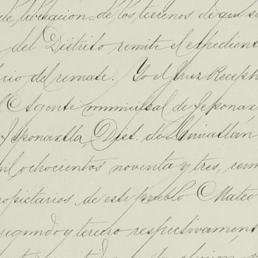 de licitacion de los terrenos de que se
del Distrito remite el expediente
rio del remate. Yo el Juez Recept
Agente municipal de Teponax
Teponaxtla, Dist. de Cuicatlán
mil ochocientos noventa y tres, rem
ropietarios de este pueblo Mateo
segundo y tercero respectivament